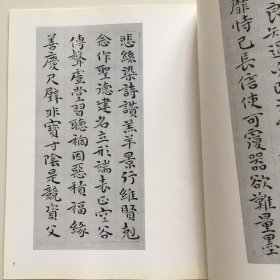 靡恃己長信使可覆器欲難量墨
悲絲染詩讚羔羊景行維賢剋
念作聖德建名立形端表正空谷
傳聲虛堂習聽禍因惡積福緣
善慶尺璧非寶寸陰是競資父